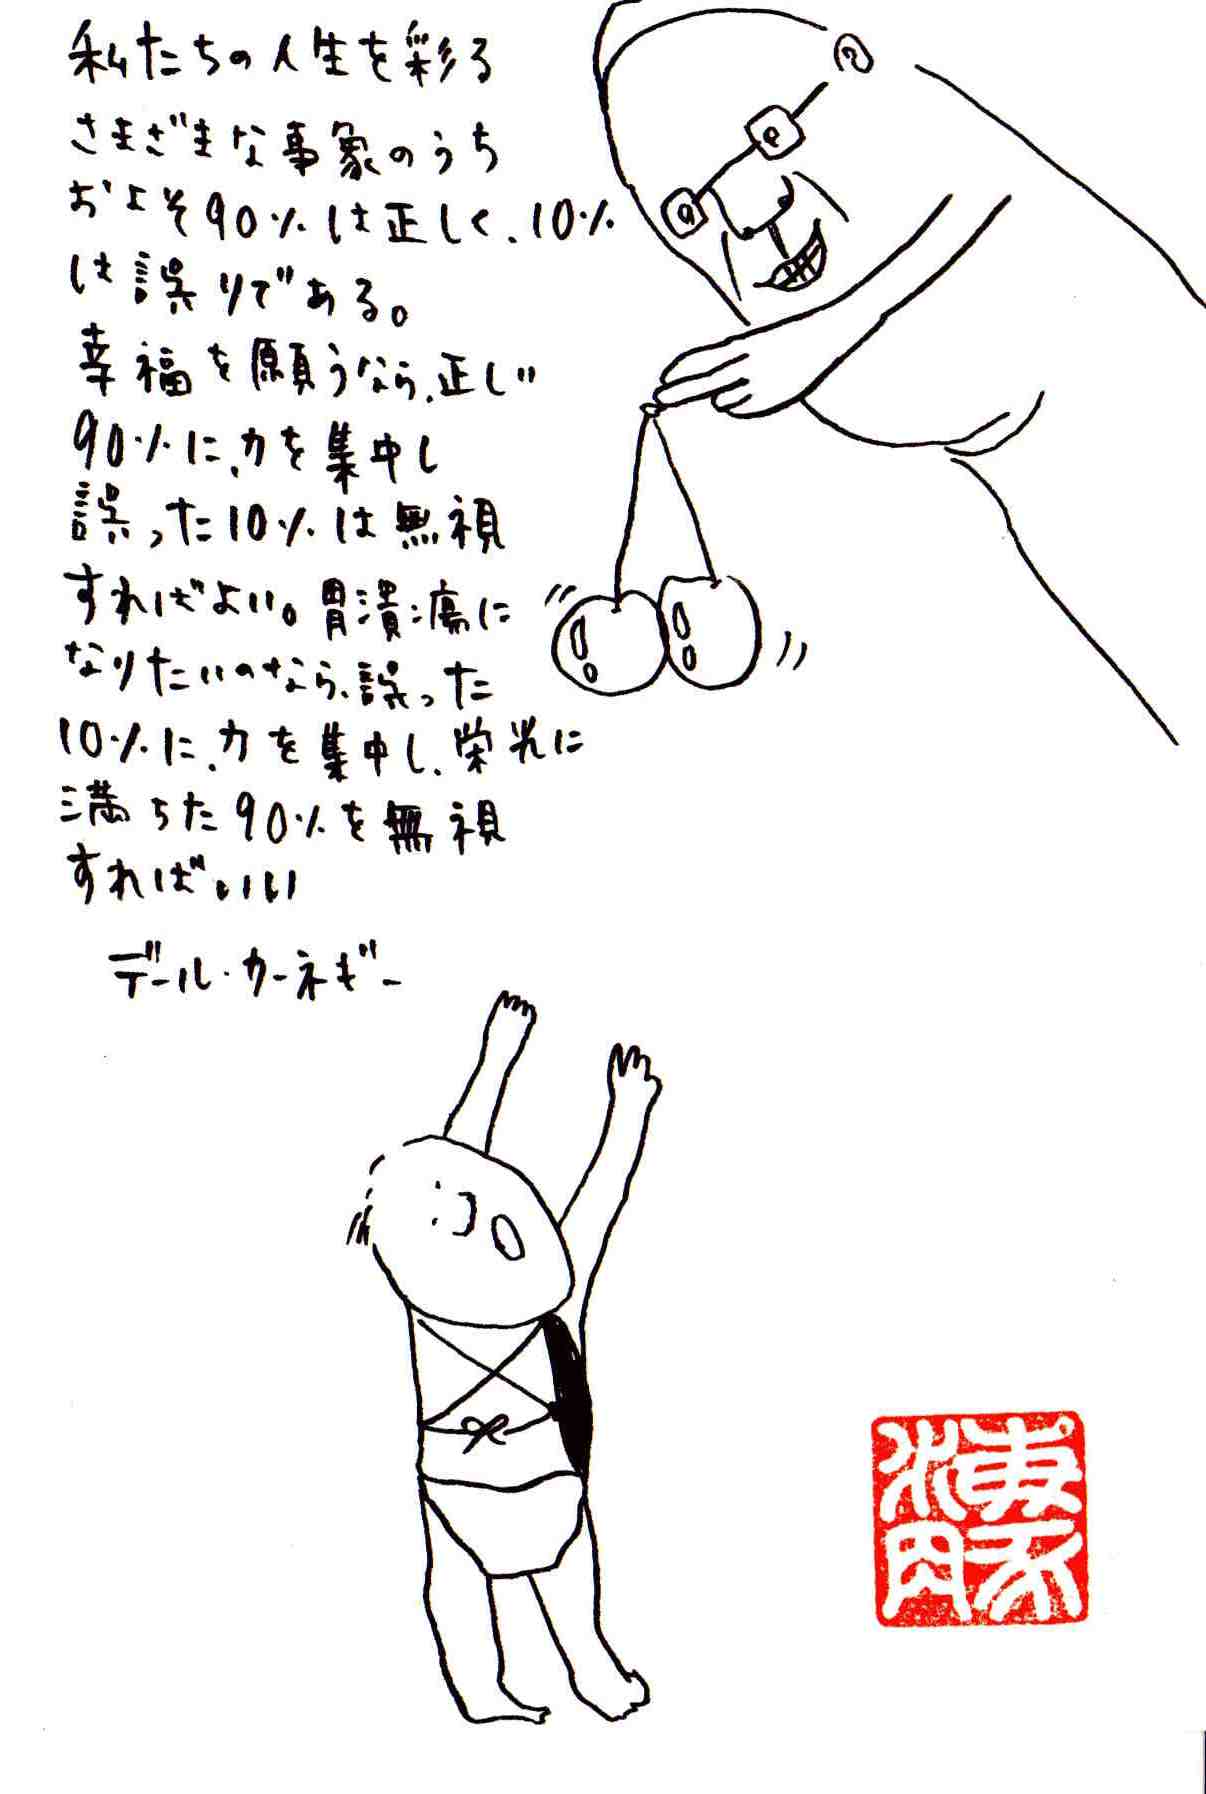 私たちの人生を彩る
さまざまな事象のうち
およそ90%は正しく、10%
は誤りである。
幸福を願うなら、正しい
90%に、力を集中し
誤った10%は無視
すればよい。胃潰瘍に
なりたいのなら、誤った
10%に、力を集中し、栄光に
満ちた90%を無視
すればいい
デール・カーネギー